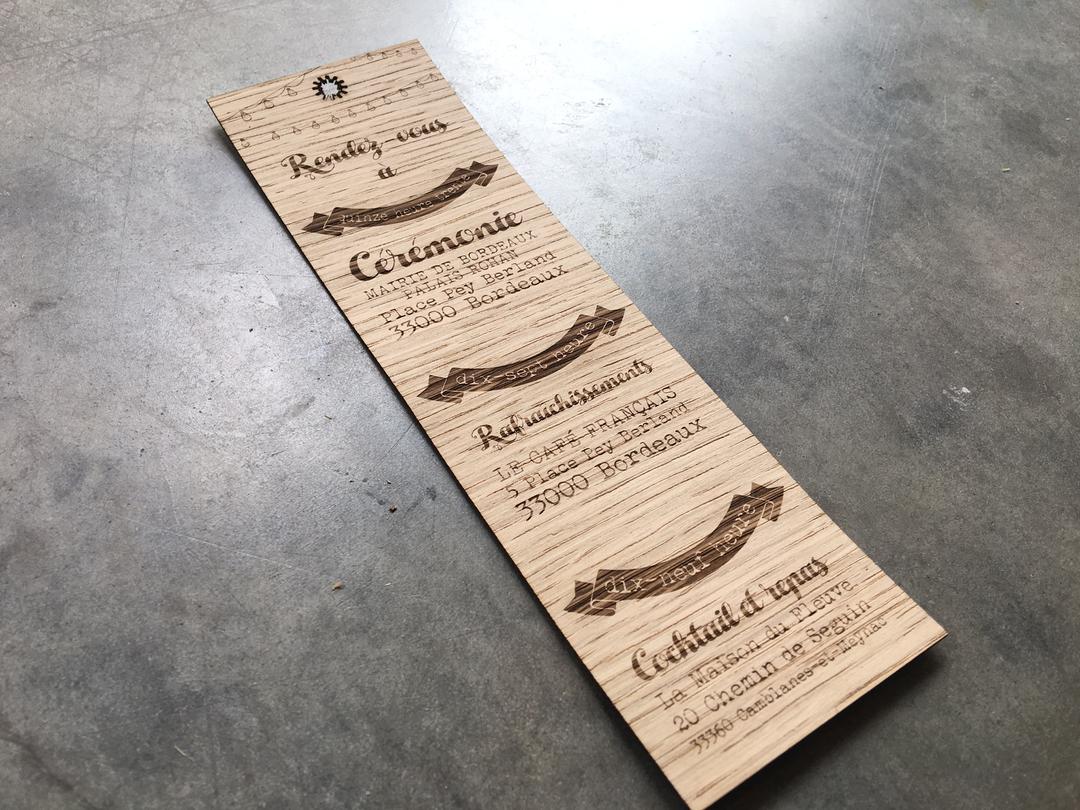 Rendez-vous
à
quinze heure trente
Cérémonie
MAIRIE DE BORDEAUX
PALAIS ROHAN
Place Pey Berland
33000 Bordeaux
dix-sept heure
Rafraichissements
LE CAFÉ FRANÇAIS
5 Place Pey Berland
33000 Bordeaux
dix-neuf heure
Cocktail et repas
La Maison du Fleuve
20 Chemin de Seguin
33360 Camblanes-et-Meynac